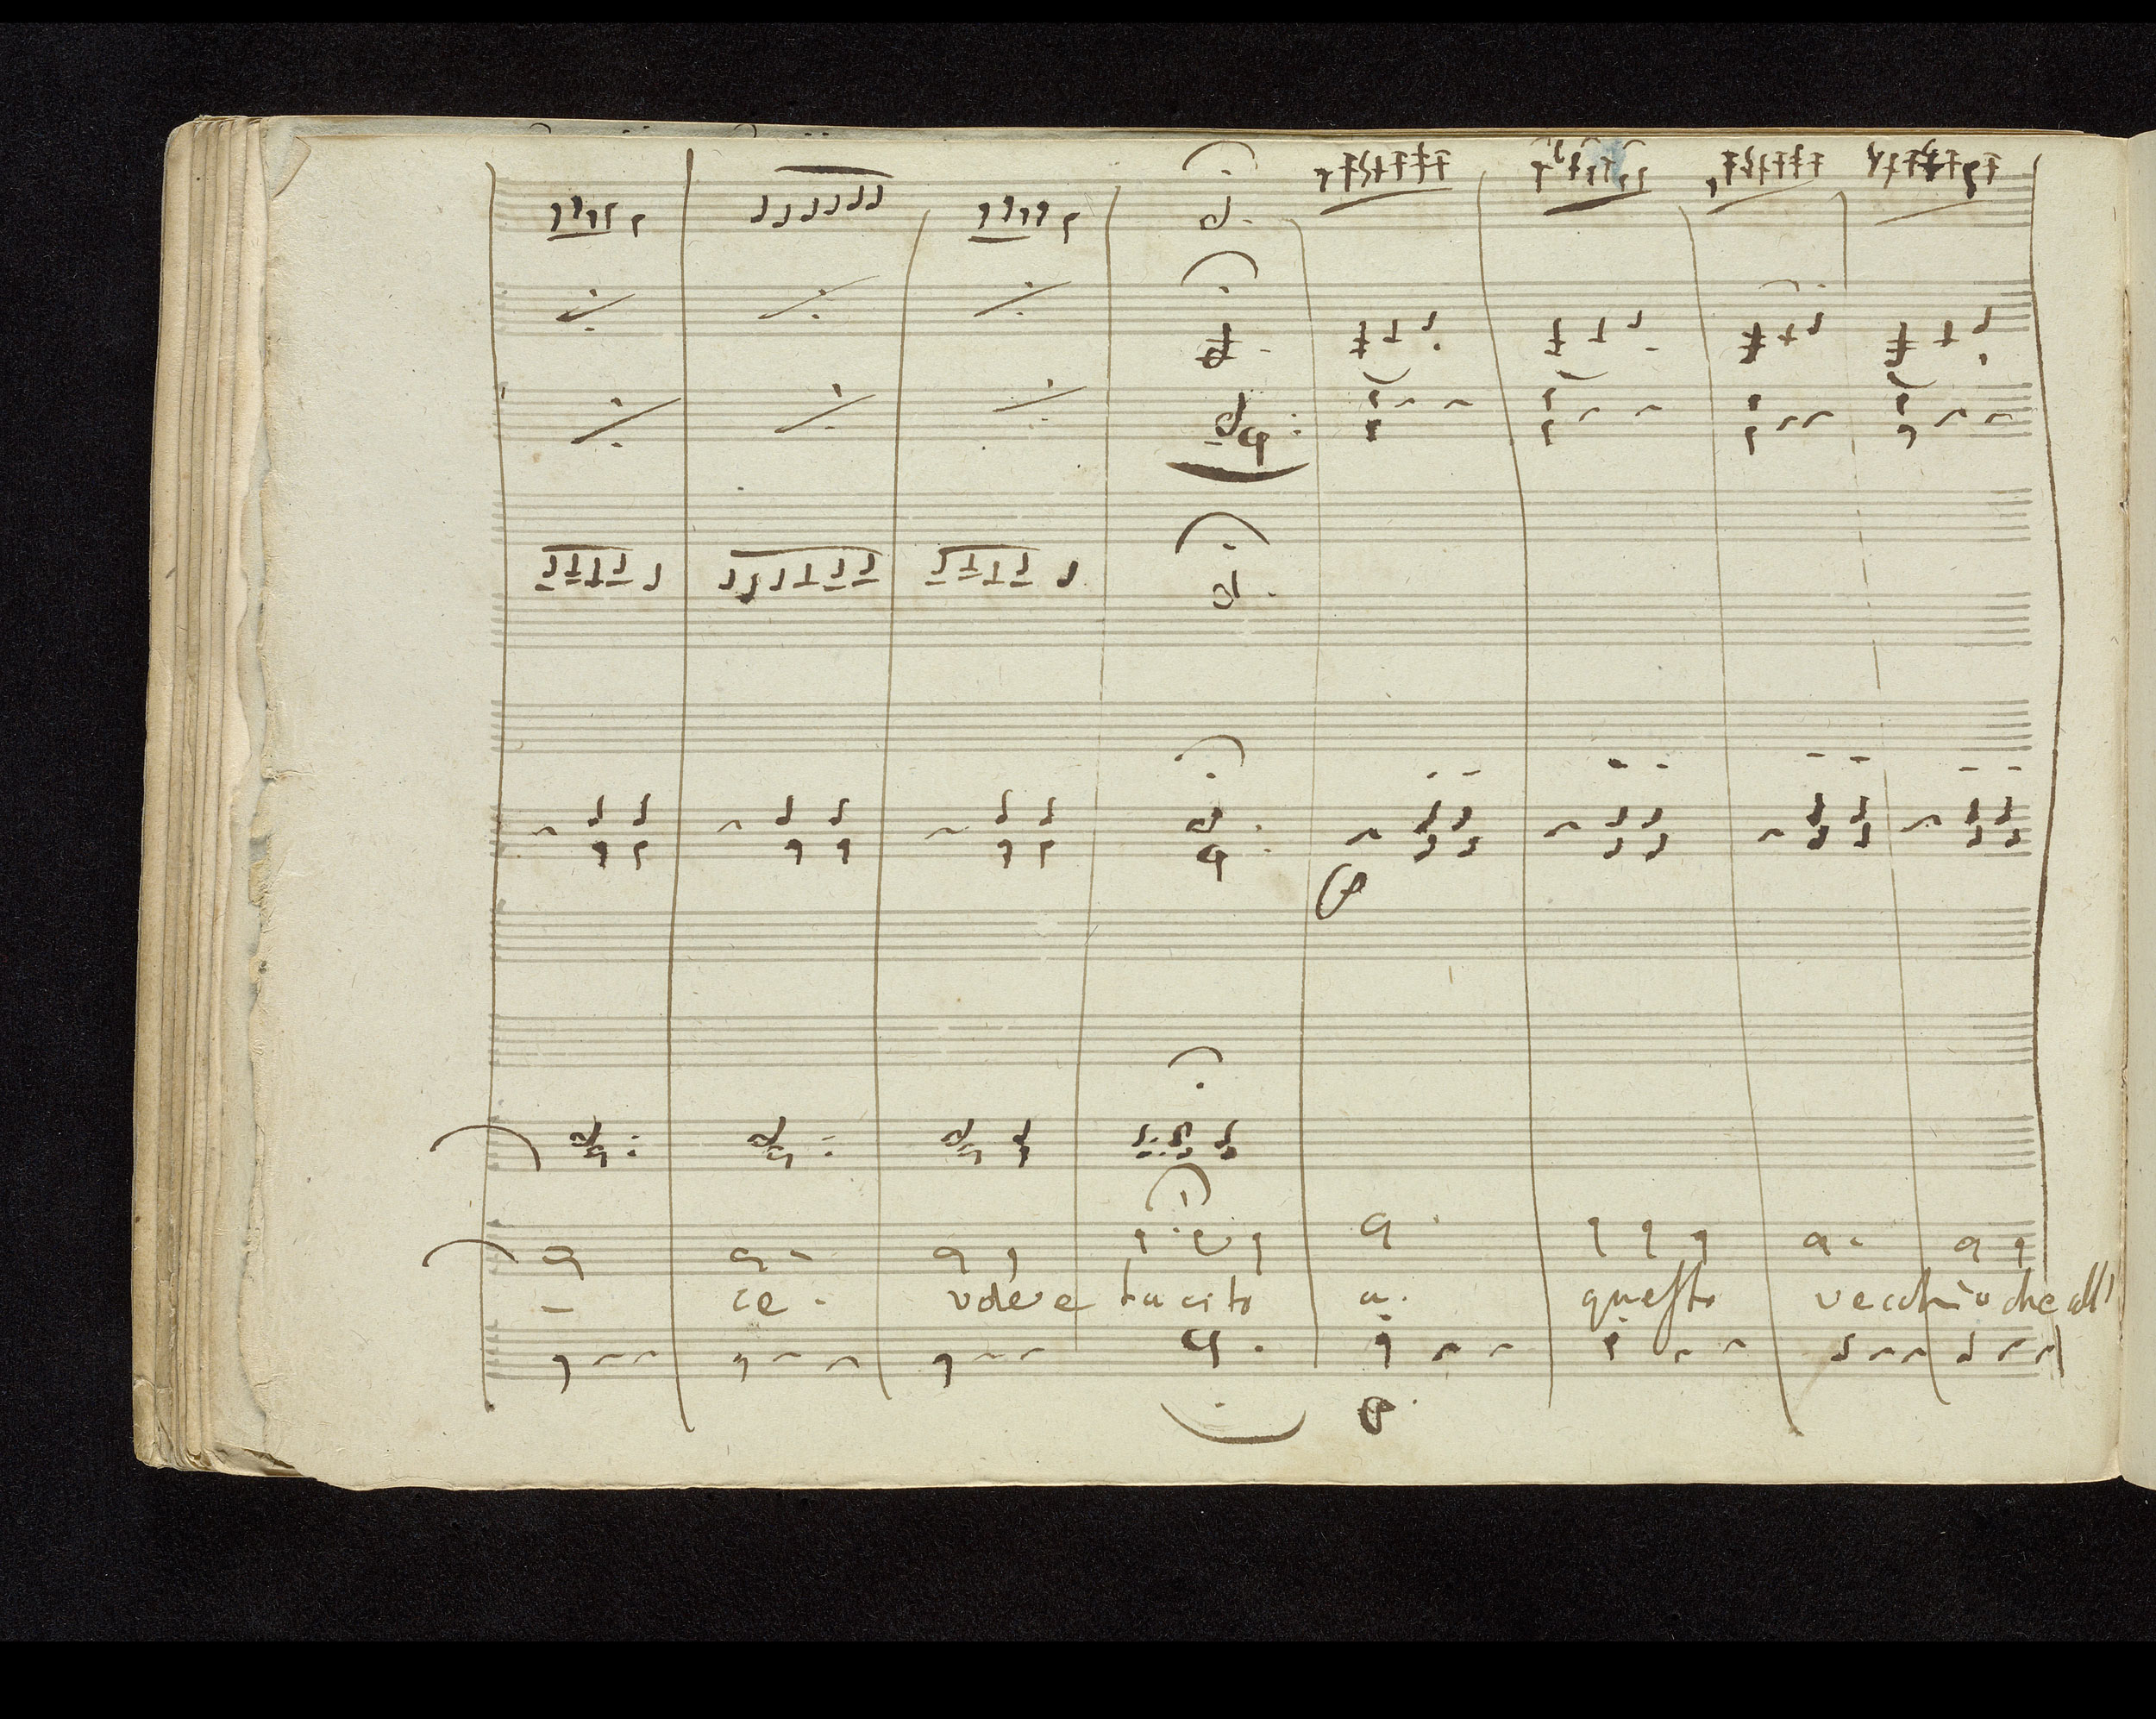 - ce - vole e tacito a. questo vecchio che all'